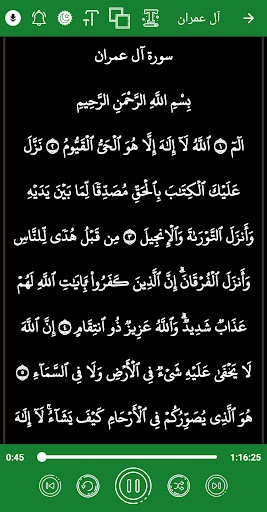 آل عمران
سورة آل عمران
بِسْمِ اللَّهِ الرَّحْمَٰنِ الرَّحِيمِ
الٓمٓ ۝١ ٱللَّهُ لَآ إِلَٰهَ إِلَّا هُوَ ٱلْحَىُّ ٱلْقَيُّومُ ۝٢ نَزَّلَ
عَلَيْكَ ٱلْكِتَٰبَ بِٱلْحَقِّ مُصَدِّقًا لِّمَا بَيْنَ يَدَيْهِ
وَأَنزَلَ ٱلتَّوْرَىٰةَ وَٱلْإِنجِيلَ ۝٣ مِن قَبْلُ هُدًى لِّلنَّاسِ
وَأَنزَلَ ٱلْفُرْقَانَ ۗ إِنَّ ٱلَّذِينَ كَفَرُوا۟ بِـَٔايَٰتِ ٱللَّهِ لَهُمْ
عَذَابٌ شَدِيدٌ ۗ وَٱللَّهُ عَزِيزٌ ذُو ٱنتِقَامٍ ۝٤ إِنَّ ٱللَّهَ
لَا يَخْفَىٰ عَلَيْهِ شَىْءٌ فِى ٱلْأَرْضِ وَلَا فِى ٱلسَّمَآءِ ۝٥
هُوَ ٱلَّذِى يُصَوِّرُكُمْ فِى ٱلْأَرْحَامِ كَيْفَ يَشَآءُ ۚ لَآ إِلَٰهَ
0:45
1:16:25